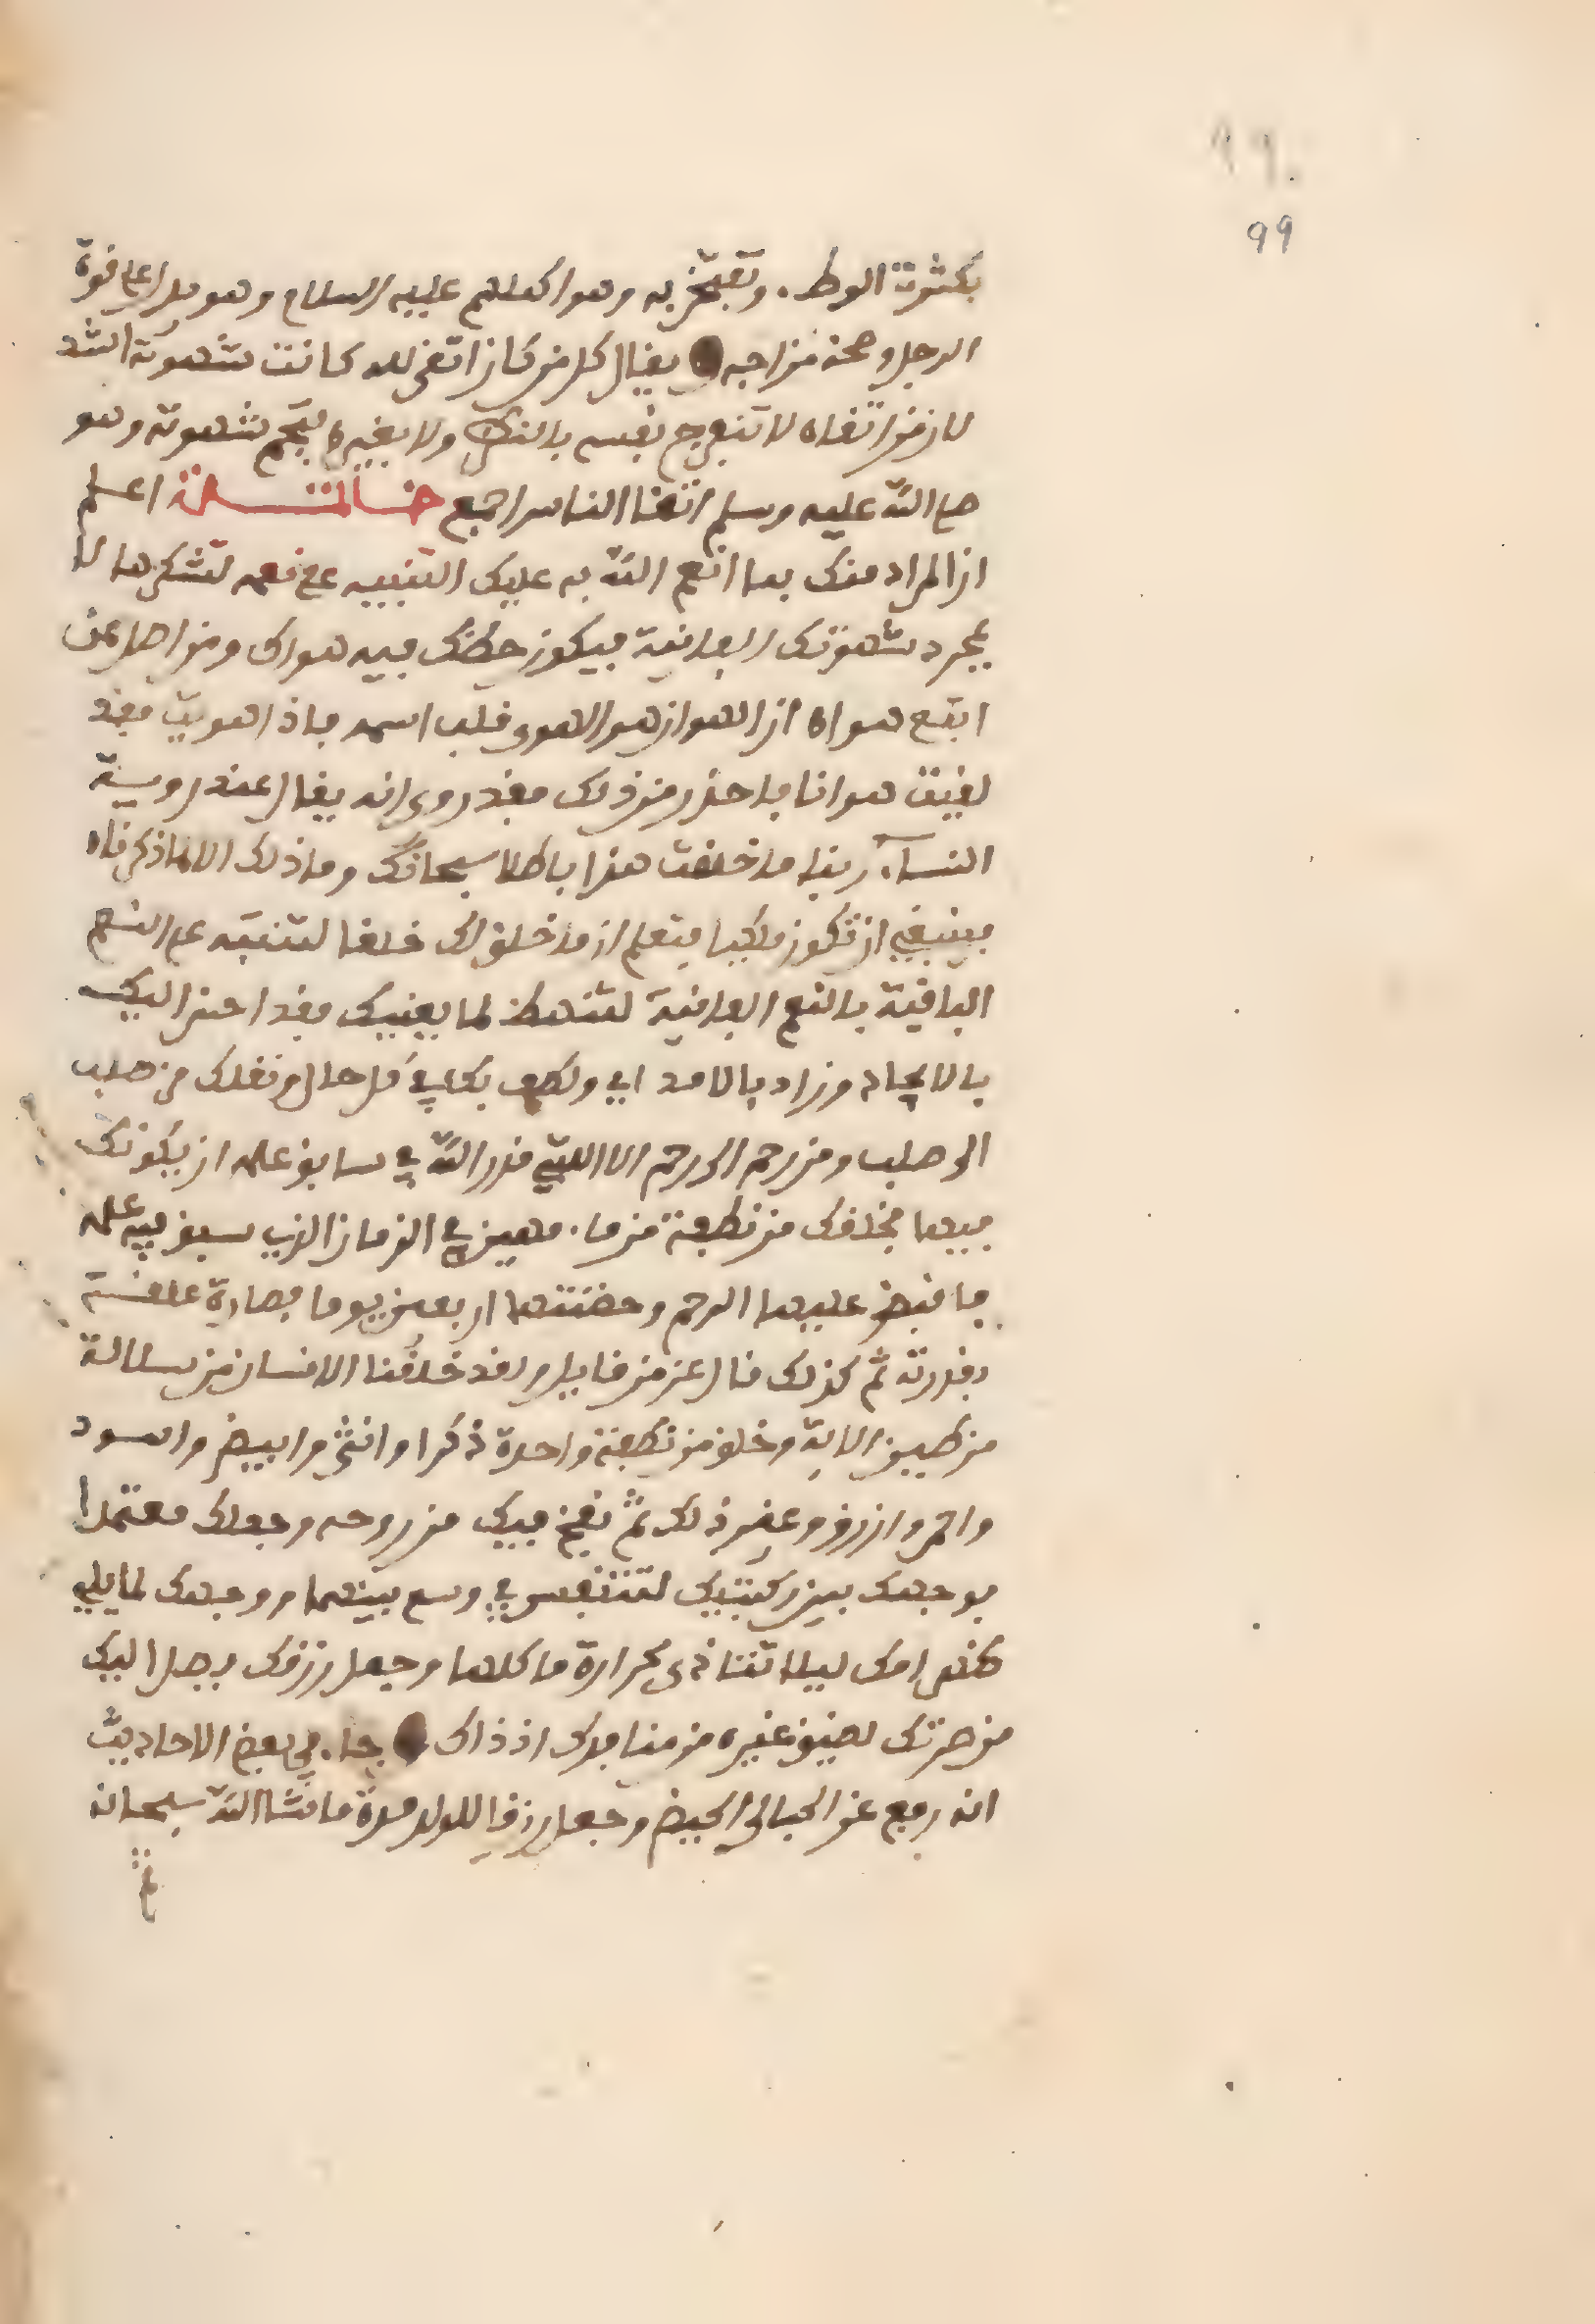 ٩٩٠
99
بكثرة الوطء وتفتخر به وهو اكملهم عليه السلام وهو يدل على قوة
الرجل وصحة مزاجه يقال كل من كان اتقى لله كانت شهوته اشد
لان من اتقاه لا تنفرج نفسه بالنظر ولا بغيره فتجم شهوته وهو
صلى الله عليه وسلم اتقا الناس اجمع خاتمة اعلم
ان المراد منك بما انعم الله به عليك التنبيه على نعمه لتشكرها لا
لمجرد شهوتك الفانية فيكون حظك فيه هواك ومن اضل ممن
اتبع هواه ان الهوان هو الهوى قلب اسمه فاذا هويت فقد
لقيت هوانا فاحذر من ذلك فقد روي انه يقال عند روية
النساء ربنا ما خلقت هذا باطلا سبحانك وما ذلك الا لما ذكرناه
فينبغي ان تكون فتعلم ان ما خلق لك خلقا لتنتبه على النعم
الباقية بالنعم الفانية لتنهض لما يعنيك فقد احسن اليك
بالايجاد وزاد بالامداد ولطف بك في كل حال ونقلك من صلب
الى صلب ومن رحم الى رحم الى التي قدر الله في سابق علمه ان يكونك
فيها فخلقك من نطفة من ماء مهين في الزمان الذي سبق فيه علمه
فانقبض عليها الرحم وحضنتها اربعين يوما فصارت علقة
بقدرته ثم كذلك قال عز من قايل ولقد خلقنا الانسان من سلالة
من طين الاية وخلق من نطفة واحدة ذكرا وانثى وابيض واسود
واحمر وازرق وغير ذلك ثم نفخ فيك من روحه وجعلك معتمدا
بوجهك بين ركبتيك لتتنفس في وسع بينهما ووجهك لما يلي
ظهر امك ليلا تتاذى بحرارة ماكلها وجعل رزقك يصل اليك
من صرتك لضيق غيره من منافذك اذ ذاك جاء في بعض الاحاديث
انه رفع عن الحبالى الحيض وجعل رزقا للولد مدة ما شا الله سبحانه
ثم